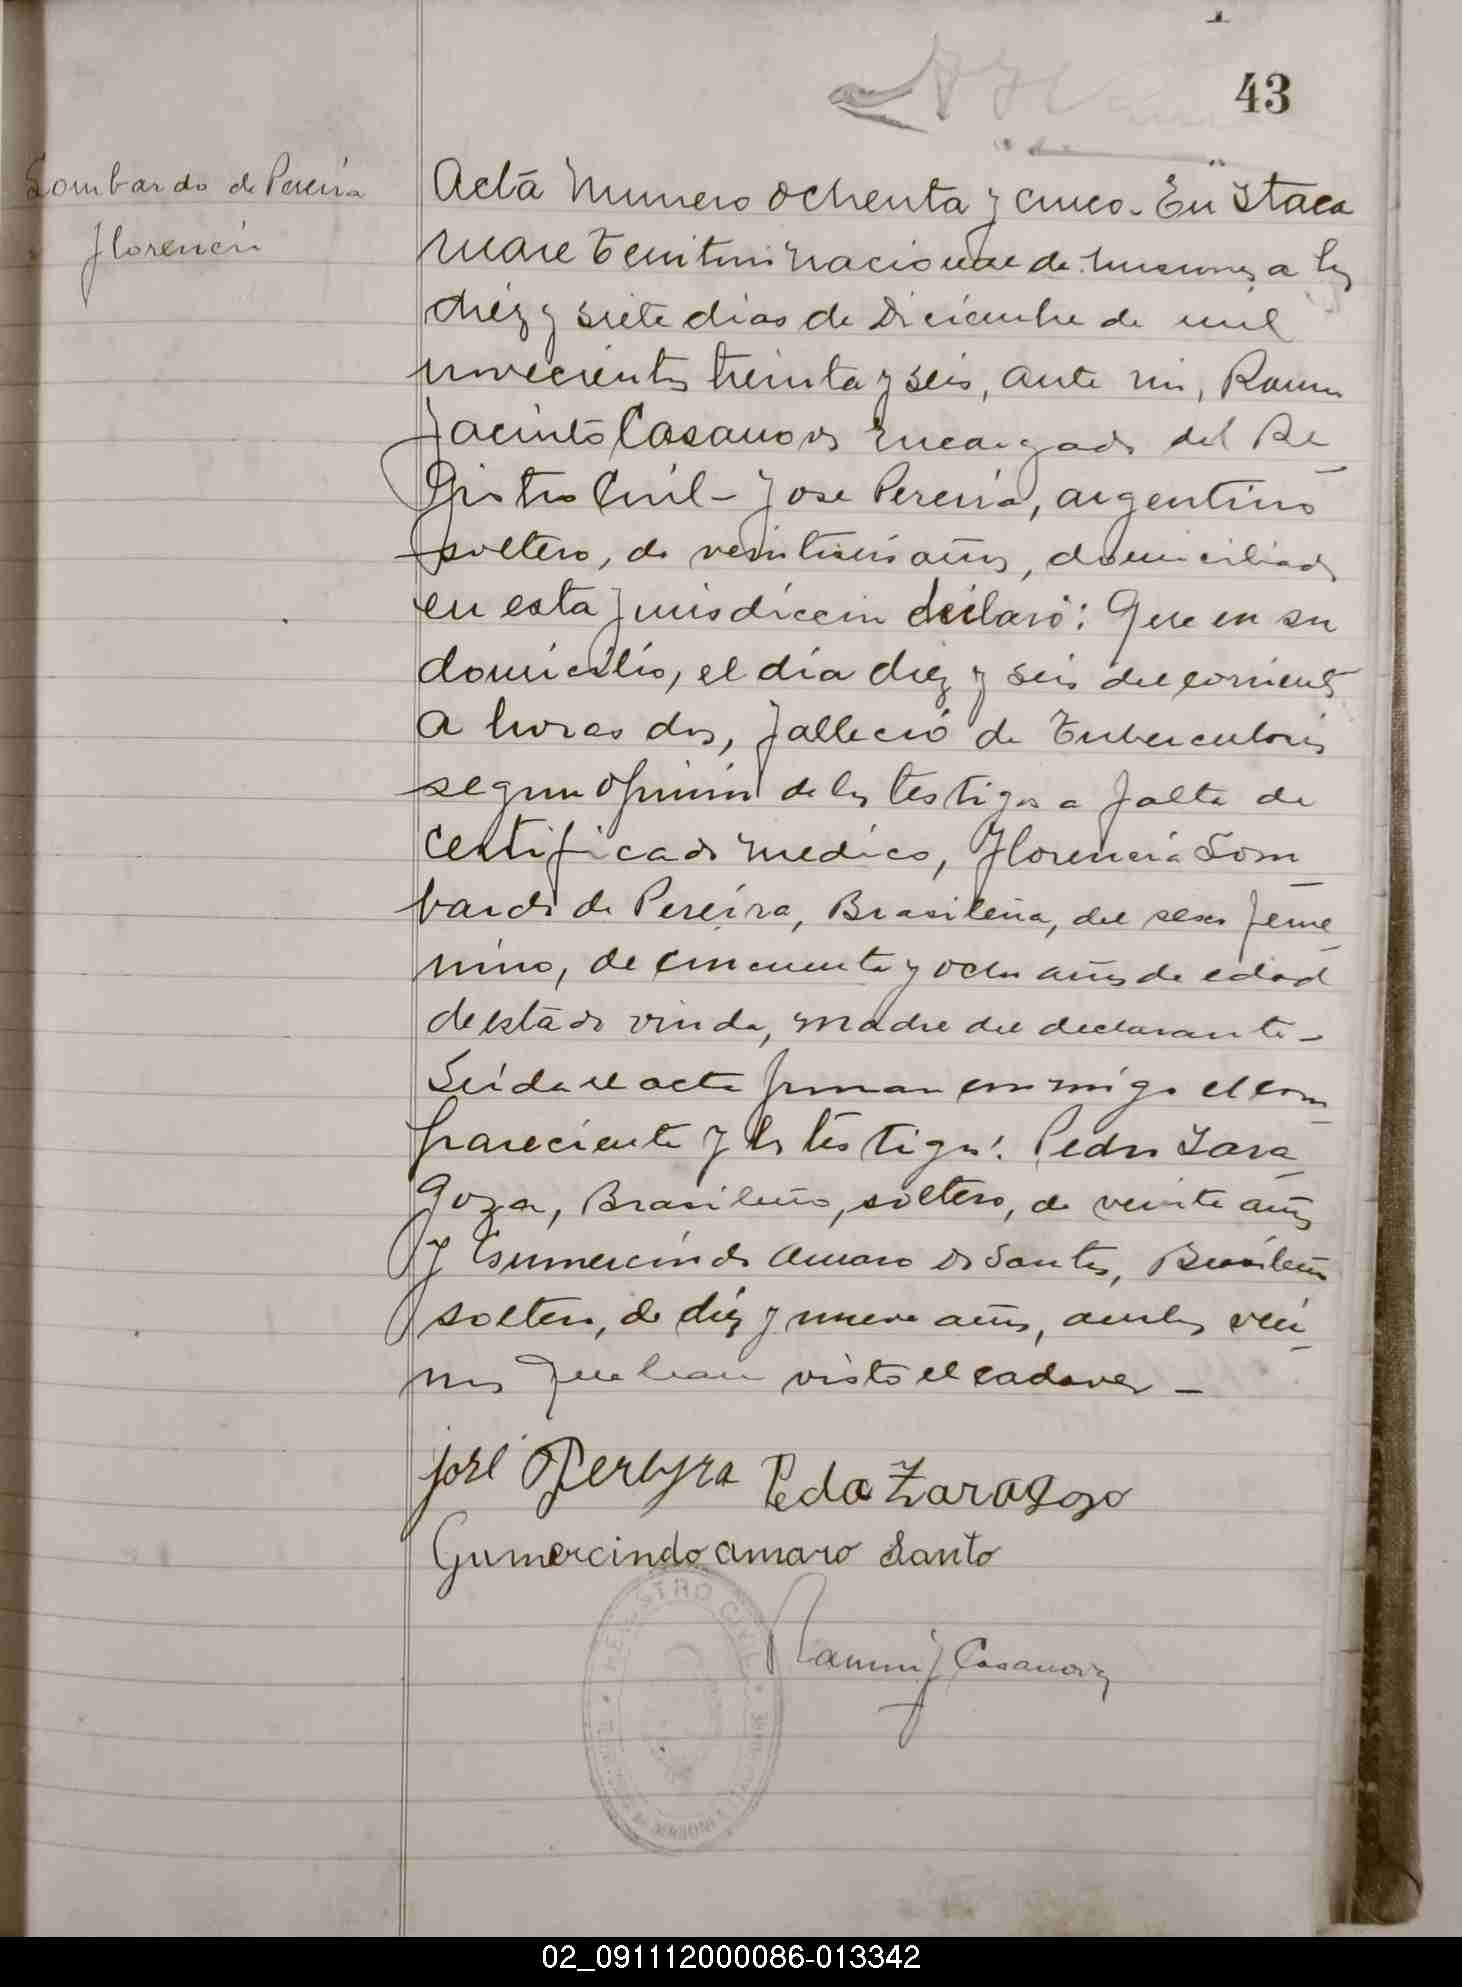 43
Lombardo de Pereira
Florencia
Acta Numero ochenta y cinco. En Itaca
ruare Territorio nacional de Misiones, a los
diez y siete dias de Diciembre de mil
novecientos treinta y seis, ante mi, Ramon
Jacinto Casanova Encargado del Re
gistro Civil - Jose Pereira, argentino
soltero, de veintiseis años, domiciliado
en esta Jurisdiccion declaró: Que en su
domicilio, el día diez y seis del corriente
a horas dos, falleció de Tuberculosis
segun opinion de los testigos a falta de
certificado medico, Florencia Lom
bardo de Pereira, Brasileña, del sexo feme
nino, de cincuenta y ocho años de edad
de estado viuda, madre del declarante -
Leida el acta firman conmigo el com
pareciente y los testigos: Pedro Zara
goza, Brasileño, soltero, de veinte años
y Gumercindo Amaro Do Santos, Brasileño
soltero, de diez y nueve años, ambos veci
nos que han visto el cadaver -
José Pereyra Pedo Zaragozo
Gumercindo amaro Santo
Ramon J Casanova
REGISTRO CIVIL
02_091112000086-013342